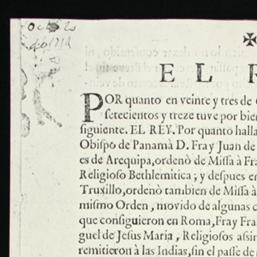 E L R
POR quanto en veinte y tres de
setecientos y treze tuve por bien
siguiente. EL REY. Por quanto halla
Obispo de Panamà D. Fray Juan de
es de Arequipa, ordenò de Missa à Fra
Religioso Bethlemitica; y despues en
Truxillo, ordenò tambien de Missa à
mismo Orden, movido de algunas c
que consiguieron en Roma, Fray Fran
guel de Jesus Maria, Religiosos assin
remitieron à las Indias, sin el passe de